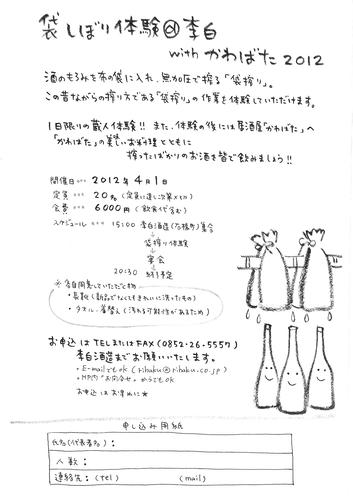 袋しぼり体験@李白
with かわばた 2012
酒のもろみを布の袋に入れ、無加圧で搾る「袋搾り」。
この昔ながらの搾り方である「袋搾り」の作業を体験していただけます。
1日限りの蔵人体験!! また、体験の後には居酒屋「かわばた」へ
「かわばた」の美しいお料理とともに
搾ったばかりのお酒を皆で飲みましょう!!
開催日… 2012年4月1日
定員… 20名(定員に達し次第〆切)
会費… 6000円(飲食代含む)
スケジュール… 15:00 李白酒造(石橋町)集合
↓
袋搾り体験
↓
宴会
↓
20:30 終了予定
※各自用意していただく物
・長靴(新品でなくてもきれいに洗ったもの)
・タオル、着替え(汚れる可能性があるため)
お申込はTELまたはFAX(0852-26-5557)
李白酒造までお願いいたします。
・E-mailでもok(rihaku@rihaku.co.jp)
・HP内"お問合せ"からでもok
お申込はお早めに★
申し込み用紙
氏名(代表者名):
人数:
連絡先:(tel) (mail)